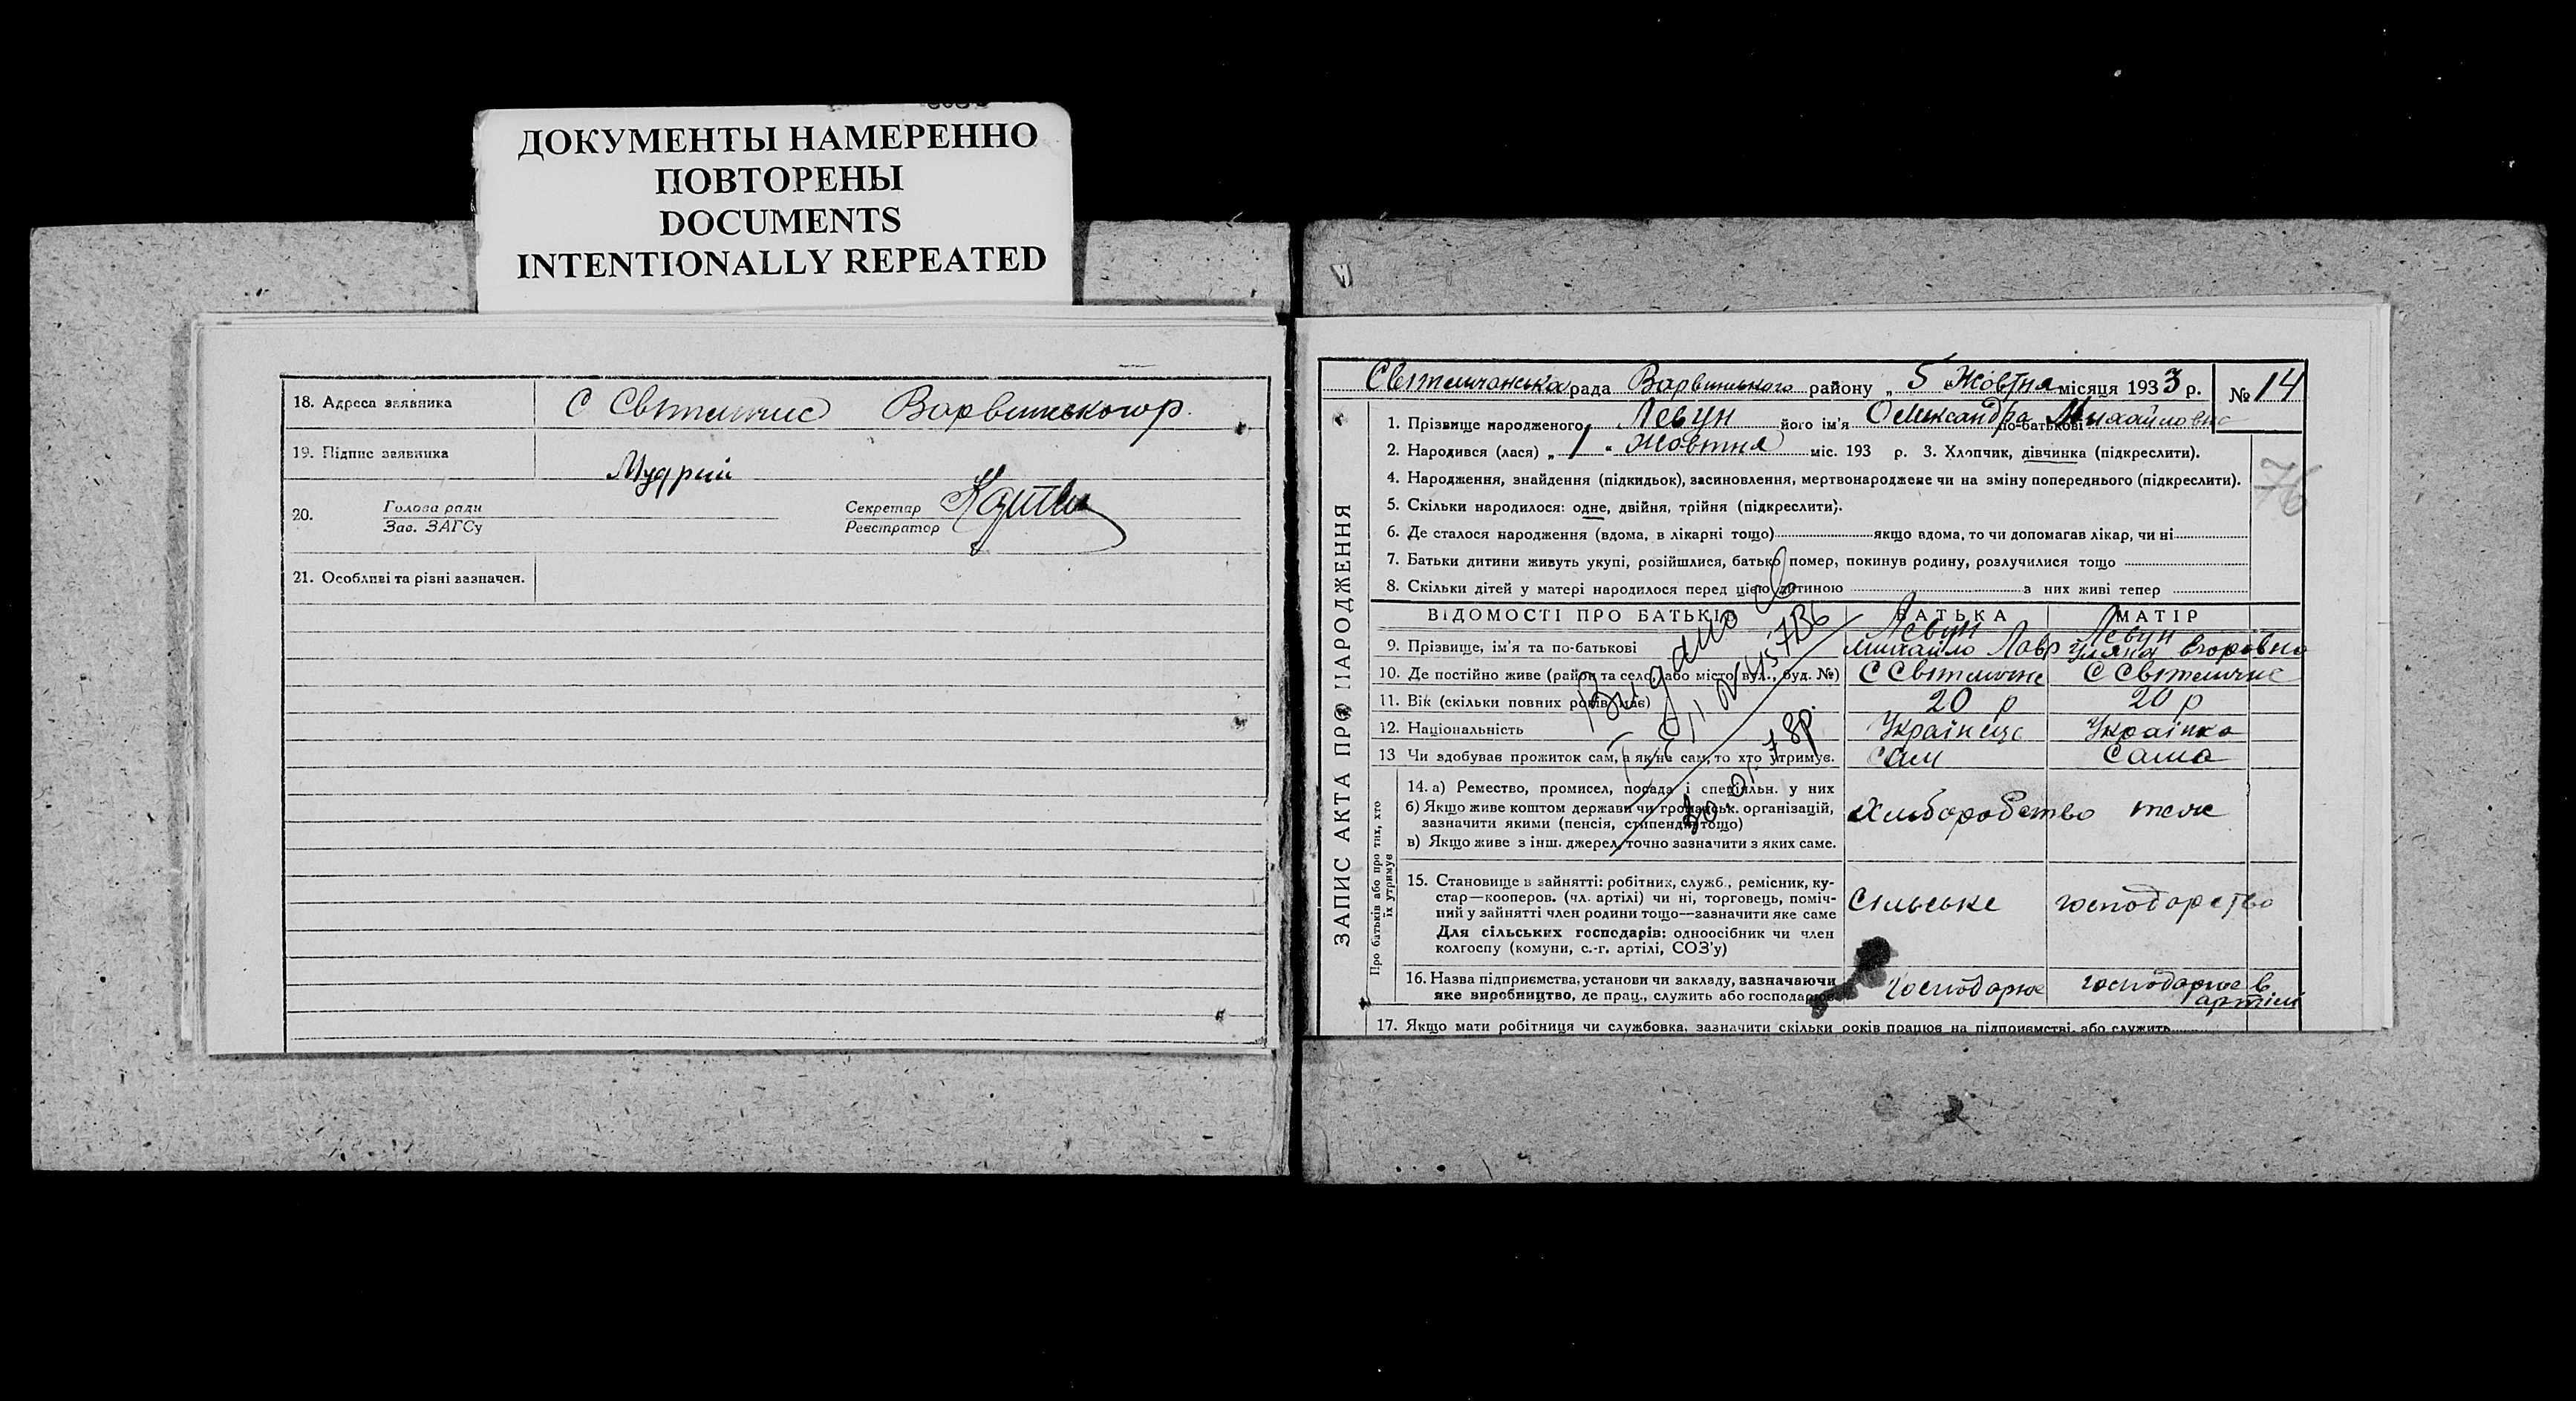 ДОКУМЕНТЫ НАМЕРЕННО
ПОВТОРЕНЫ
DOCUMENTS
INTENTIONALLY REPEATED
18. Адреса заявника С Світличне Варвинського р.
19. Підпис заявника Мудрий
20. Голова ради
Зав. ЗАГСу
Секретар
Реєстратор
21. Особливі та різні зазначен.
ЗАПИС АКТА ПРО НАРОДЖЕННЯ
Світличанська рада Варвинського району „ 5 " Жовтня місяця 1933 р. № 14
1. Прізвище народженого Левун його ім'я Олександра по-батькові Михайловна
2. Народився (лася) „ 1 " Жовтня міс. 193 р. 3. Хлопчик, дівчинка (підкреслити).
76
4. Народження, знайдення (підкидьок), засиновлення, мертвонароджене чи на зміну попереднього (підкреслити).
5. Скільки народилося: одне, двійня, трійня (підкреслити).
6. Де сталося народження (вдома, в лікарні тощо) якщо вдома, то чи допомагав лікар, чи ні
7. Батьки дитини живуть укупі, розійшлися, батько помер, покинув родину, розлучилися тощо
8. Скільки дітей у матері народилося перед цією дитиною з них живі тепер
ВІДОМОСТІ ПРО БАТЬКІВ БАТЬКА МАТІР
Левун Левун
9. Прізвище, ім'я та по-батькові Михайло Лавр Уляна Егоровна
10. Де постійно живе (район та село, або місто, вул., буд. №) С Світличне С Світличне
11. Вік (скільки повних років має) 20 р 20 р
12. Національність Українець Українка
13 Чи здобуває прожиток сам, а як не сам, то хто утримує. Сам Сама
Видано
Про батьків або про тих, хто
їх утримує
14. а) Ремество, промисел, посада і спеціяльн. у них
б) Якщо живе коштом держави чи громадськ. організацій, Хліборобство теж
зазначити якими (пенсія, стипендія тощо)
в) Якщо живе з інш. джерел, точно зазначити з яких саме.
15. Становище в зайнятті: робітник, служб., ремісник, ку-
стар—кооперов. (чл. артілі) чи ні, торговець, поміч- Сільське господарство
ний у зайнятті член родини тощо—зазначити яке саме
Для сільських господарів: одноосібник чи член
колгоспу (комуни, с.-г. артілі, СОЗ'у)
16. Назва підприємства, установи чи закладу, зазначаючи Господарює господарює в
яке виробництво, де прац., служить або господарює артілі
17. Якщо мати робітниця чи службовка, зазначити скільки років працює на підприємстві, або служить